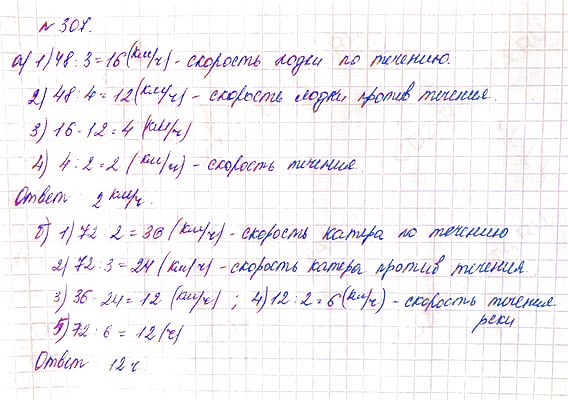 № 307.
а) 1) 48 : 3 = 16 (км/ч) - скорость лодки по течению.
2) 48 : 4 = 12 (км/ч) - скорость лодки против течения.
3) 16 - 12 = 4 (км/ч)
4) 4 : 2 = 2 (км/ч) - скорость течения
Ответ 2 км/ч.
б) 1) 72 2 = 36 (км/ч) - скорость катера по течению
2) 72 : 3 = 24 (км/ч) - скорость катера против течения
3) 36 - 24 = 12 (км/ч) ; 4) 12 : 2 = 6 (км/ч) - скорость течения
реки
5) 72 : 6 = 12 (ч)
Ответ 12 ч.